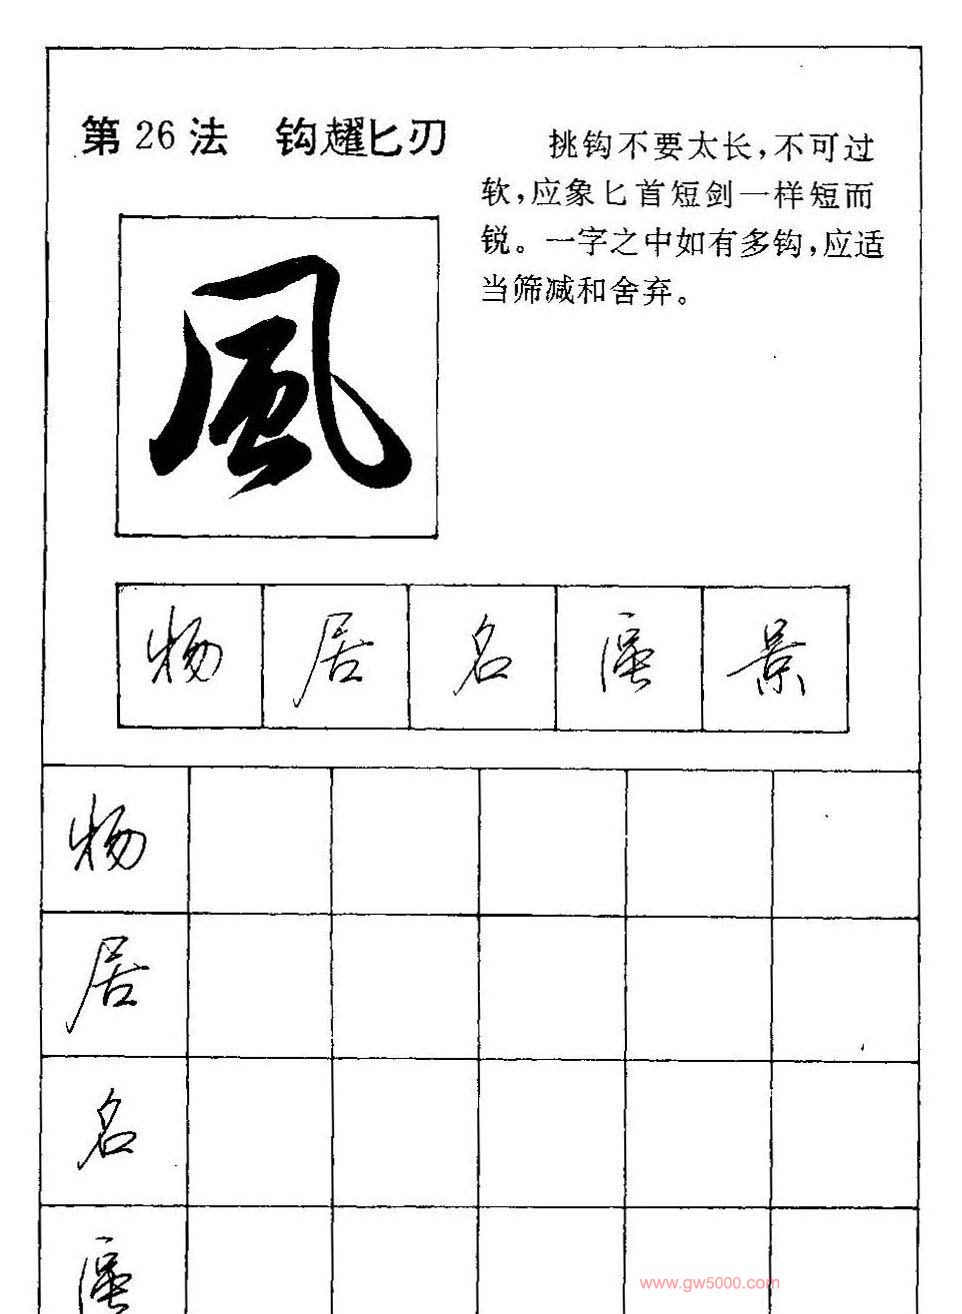 第26法 钩趯匕刃
挑钩不要太长,不可过
软,应象匕首短剑一样短而
锐。一字之中如有多钩,应适
当筛减和舍弃。
風
物 居 名 景
物
居
名
www.gw5000.com